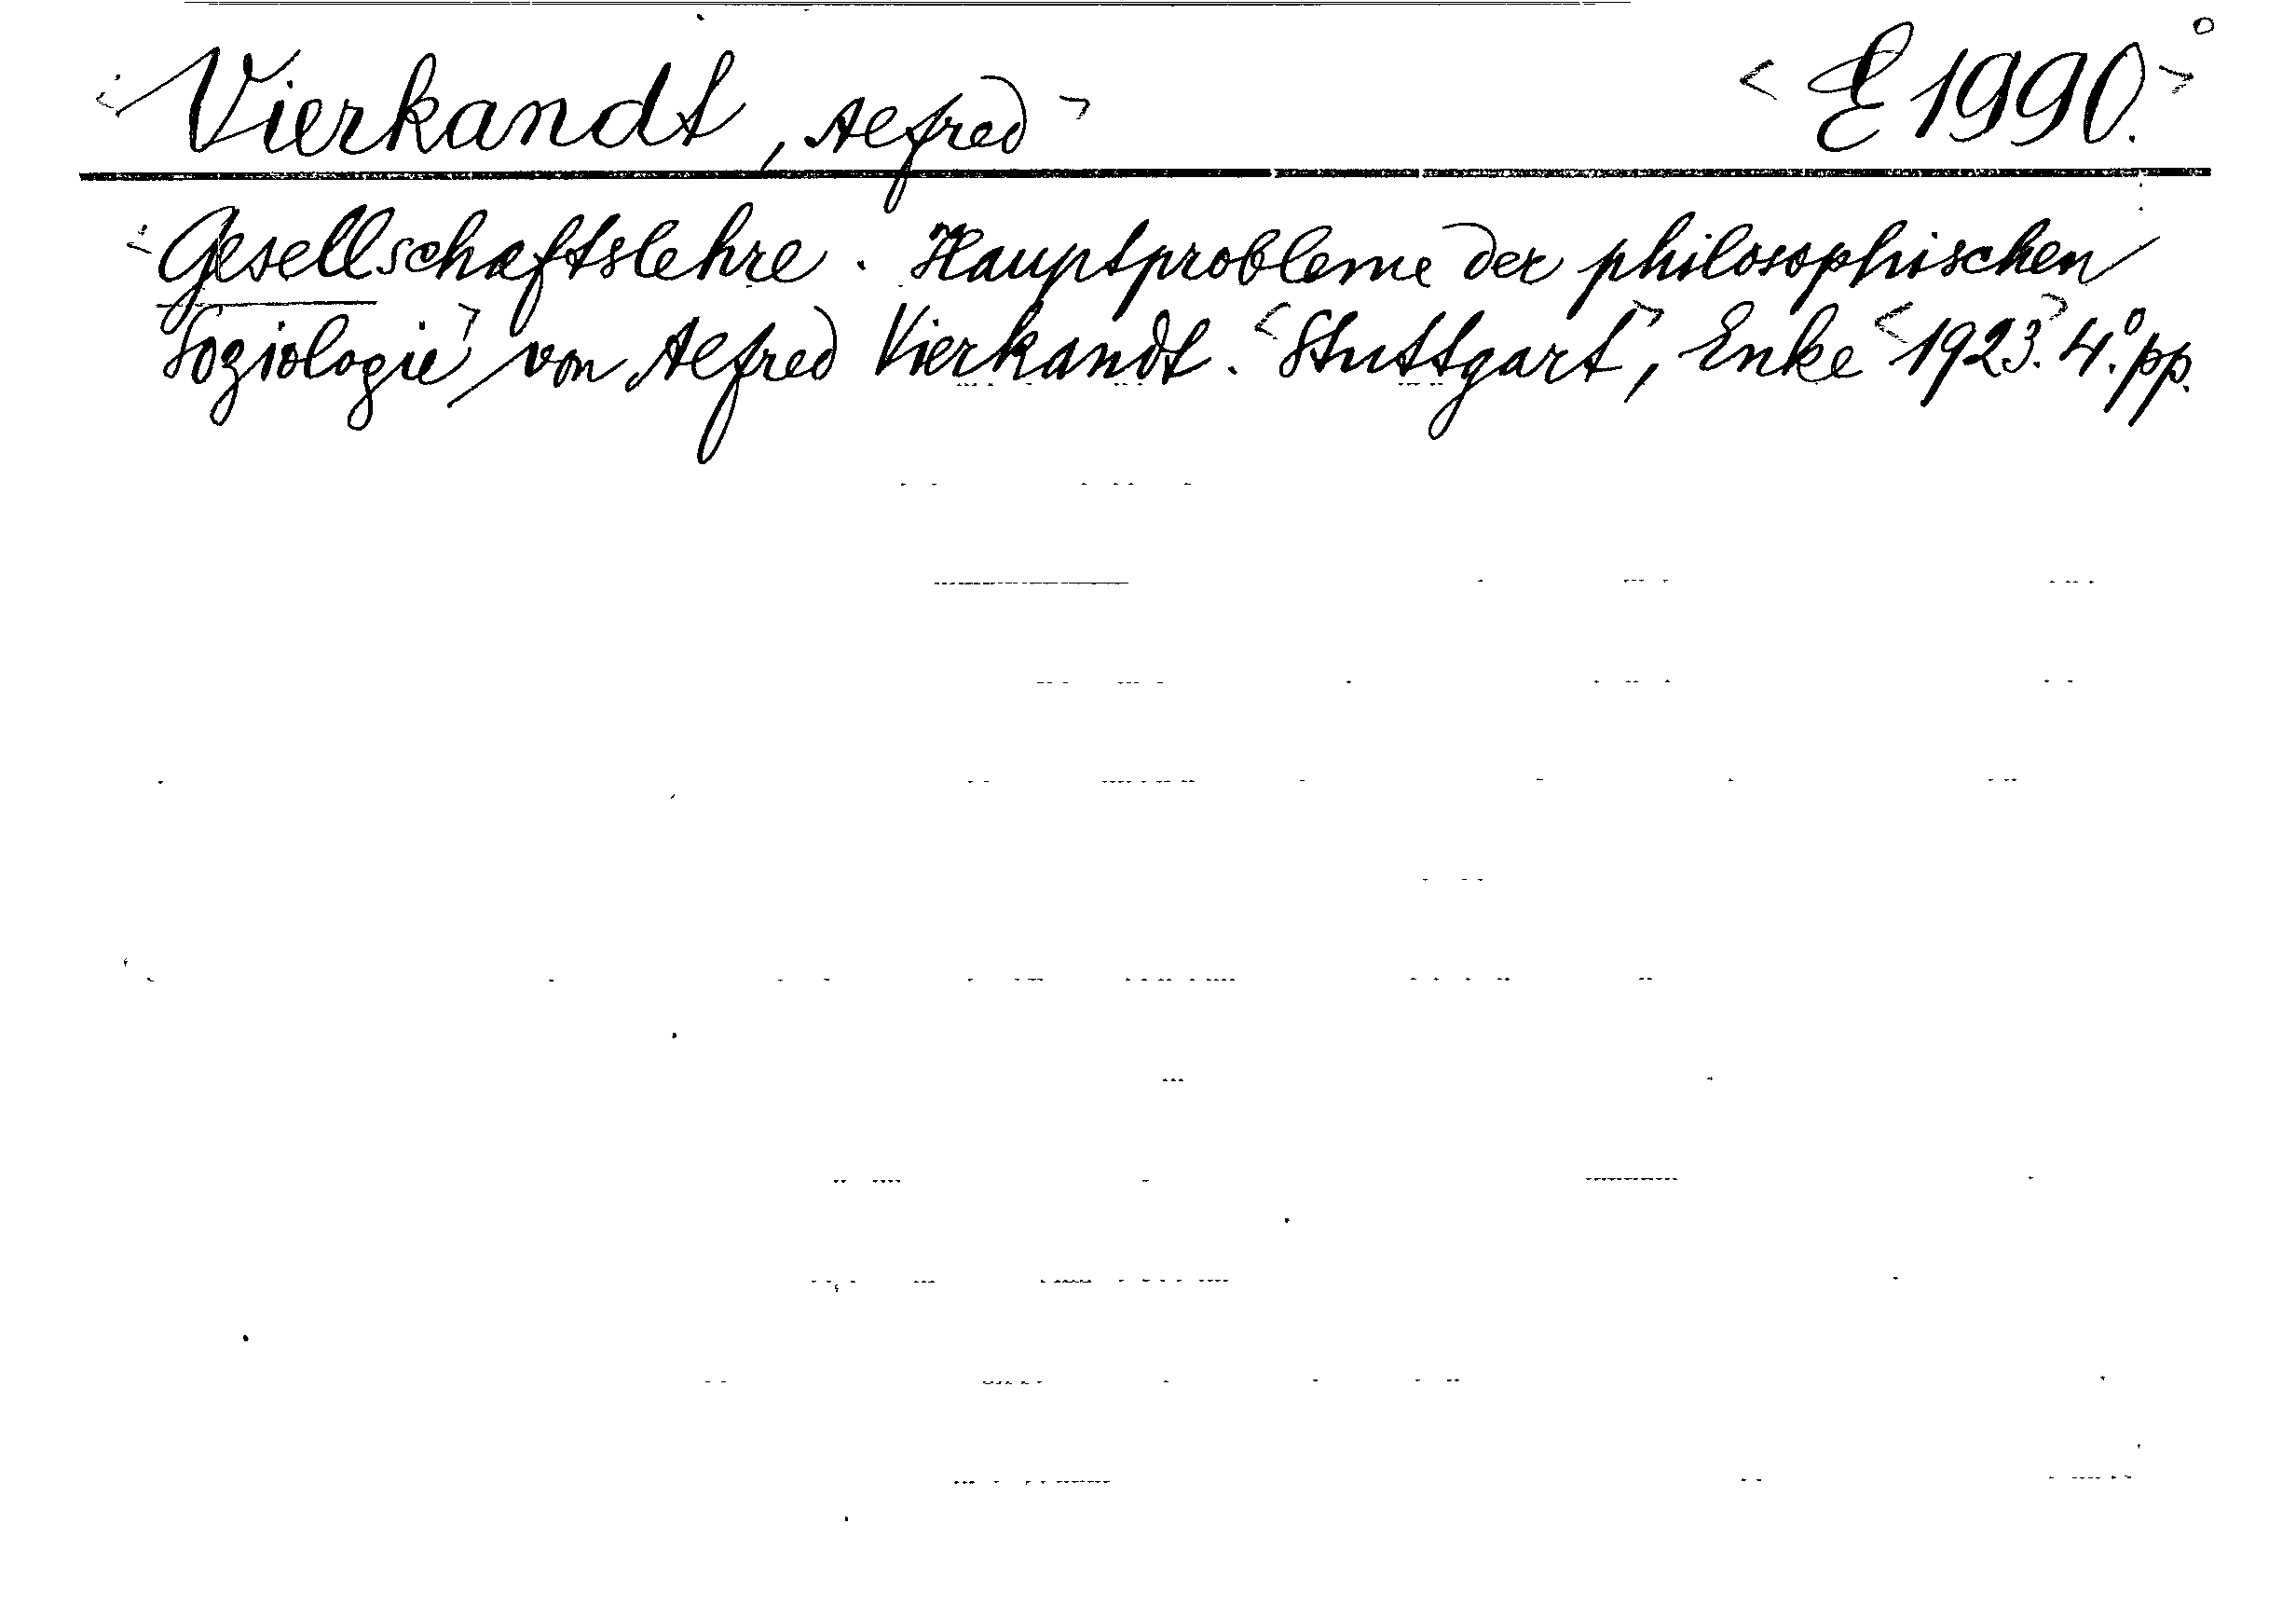 <Vierkandt, Alfred> <E 1990.>
<Gesellschaftslehre. Hauptprobleme der philosophischen
Soziologie> von Alfred Vierkandt. <Stuttgart>, Enke <1923.> 4.° pp.